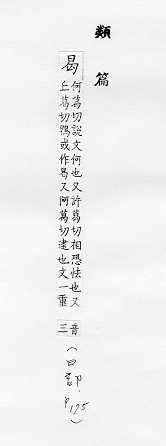 類篇
曷
何葛切說文何也又許葛切相恐怯也又
丘葛切鴨或作曷又阿葛切逮也文一重
音三
(曰部. P.125)